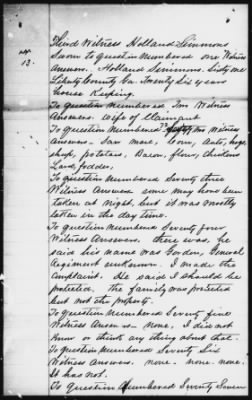 Third Witness Holland Simmons
Sworn to question numbered one Witness
Answers. Holland Simmons. Sixty one
Liberty County Ga. Twenty Six years
House Keeping.
To question numbered Two Witness
Answers. Wife of Claimant
To question numbered Seventy two Witness
Answers - Saw mare, Corn, Auto, hogs
sheep, potatoes, Bacon, flour, chickens
Lard, fodder.
To question numbered Seventy three
Witness Answers some may have been
taken at night, but it was mostly
taken in the day time.
To question numbered Seventy four
Witness Answers. there was. he
said his name was Gordon, General
Regiment unknown. I made the
Complaint. He said I should be
protected, the family was protected
but not the property.
To question numbered Seventy five
Witness Answers - none, I did not
know or think any thing about that.
To question numbered Seventy Six
Witness Answers. none - none - none.
It has not.
To question numbered Seventy Seven
13